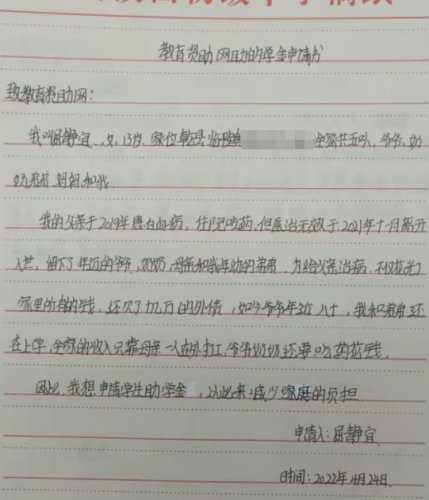 教育资助网助学金申请书
致教育资助网:
我叫屈静宜,女,13岁,家住乾县临平镇 全家共五口人,爷爷,奶
奶弟弟妈妈和我.
我的父亲于2019年患白血病,住院吃药,但医治无效于2021年十一月离开
人世,留下了年迈的爷爷,奶奶,母亲和我年幼的弟弟,为给父亲治病,不仅花光了
家里所有的钱,还欠了十几万的外债,如今爷爷年近八十,我和弟弟还
在上学,全家的收入只靠母亲一人在外打工,爷爷奶奶还要吃药花钱.
因此,我想申请学生助学金,以此来减少家庭的负担
申请人:屈静宜
时间:2022年4月24日.